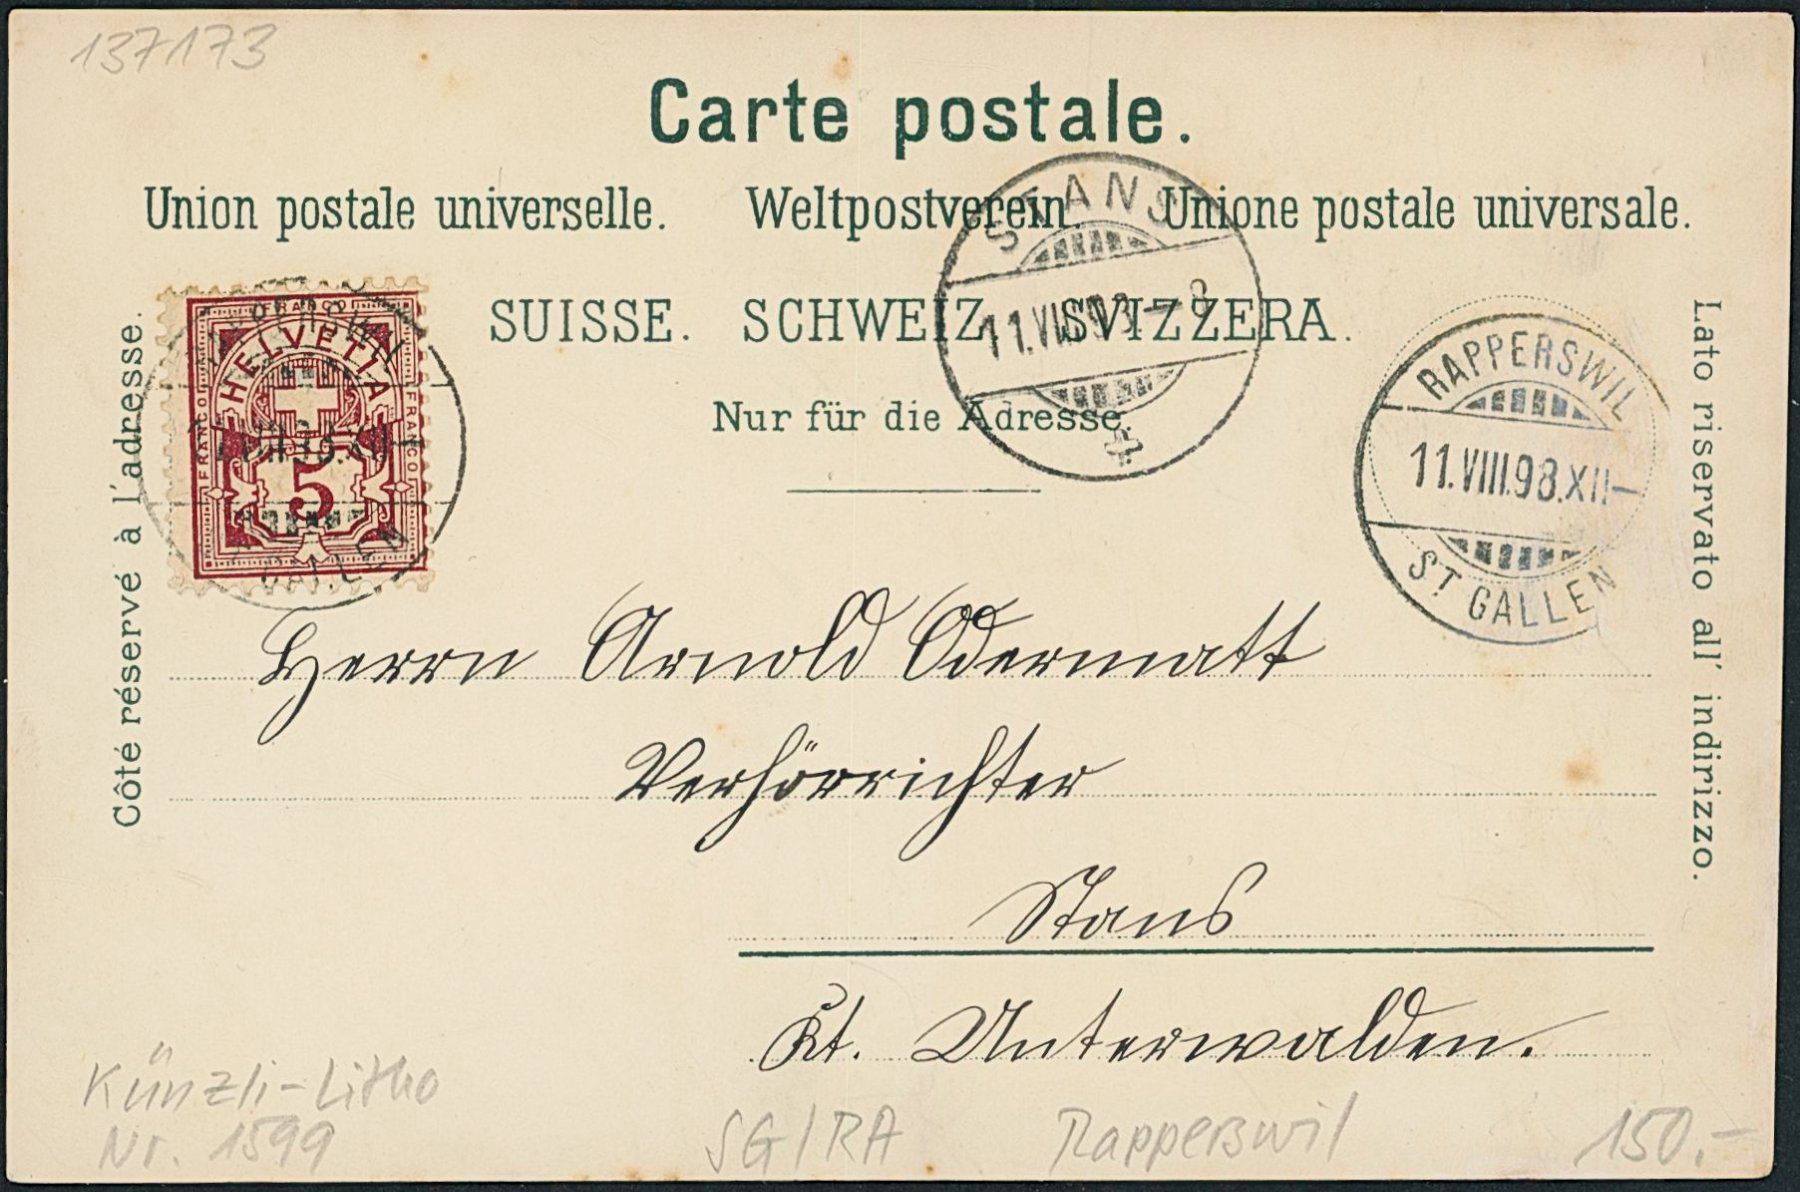 137173
Carte postale.
Union postale universelle. Weltpostverein. Unione postale universale.
SUISSE. SCHWEIZ. SVIZZERA.
Nur für die Adresse.
Côté réservé à l'adresse.
Lato riservato all' indirizzo.
FRANCO
HELVETIA
FRANCO
FRANCO
5
GALLEN
STANS
11.VIII.98 - 8
RAPPERSWIL
11.VIII.98.XII-
ST. GALLEN
Herrn Arnold Odermatt
Verhörrichter
Stans
Kt. Unterwalden.
Künzli-Litho
Nr. 1599
SG/RA
Rapperswil
150.-